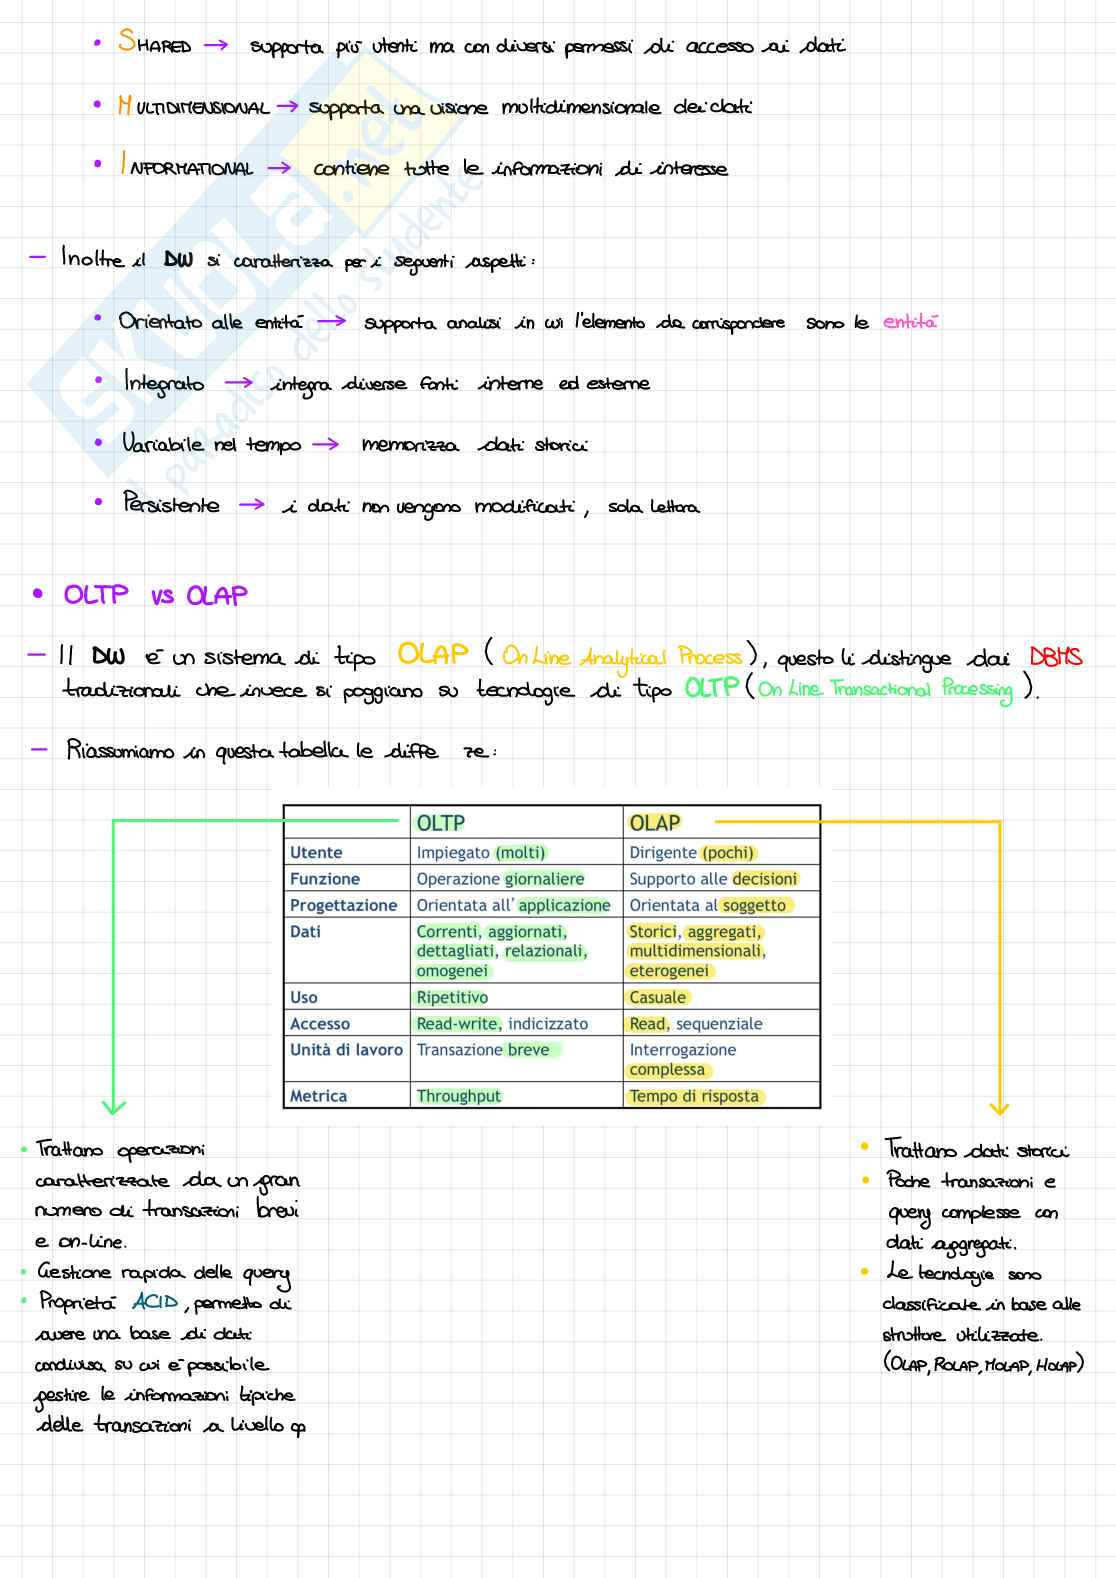 • SHARED → supporta più utenti ma con diversi permessi di accesso ai dati
• MULTIDIMENSIONAL → supporta una visione multidimensionale dei dati
• INFORMATIONAL → contiene tutte le informazioni di interesse
– Inoltre il DW si caratterizza per i seguenti aspetti:
• Orientato alle entità → supporta analisi in cui l'elemento da corrispondere sono le entità
• Integrato → integra diverse fonti interne ed esterne
• Variabile nel tempo → memorizza dati storici
• Persistente → i dati non vengono modificati, sola lettura
• OLTP vs OLAP
– Il DW è un sistema di tipo OLAP (On Line Analytical Process), questo li distingue dai DBMS
tradizionali che invece si poggiano su tecnologie di tipo OLTP (On Line Transactional Processing).
– Riassumiamo in questa tabella le diffe ze:
OLTP OLAP
Utente Impiegato (molti) Dirigente (pochi)
Funzione Operazione giornaliere Supporto alle decisioni
Progettazione Orientata all'applicazione Orientata al soggetto
Dati Correnti, aggiornati, Storici, aggregati,
dettagliati, relazionali, multidimensionali,
omogenei eterogenei
Uso Ripetitivo Casuale
Accesso Read-write, indicizzato Read, sequenziale
Unità di lavoro Transazione breve Interrogazione
complessa
Metrica Throughput Tempo di risposta
• Trattano operazioni
caratterizzate da un gran
numero di transazioni brevi
e on-line.
• Gestione rapida delle query
• Proprietà ACID, permetto di
avere una base di dati
condivisa su cui è possibile
gestire le informazioni tipiche
delle transazioni a livello op
• Trattano dati storici
• Poche transazioni e
query complesse con
dati aggregati.
• Le tecnologie sono
classificate in base alle
strutture utilizzate.
(OLAP, ROLAP, MOLAP, HOLAP)
SKUOLA.net
il paradiso dello studente